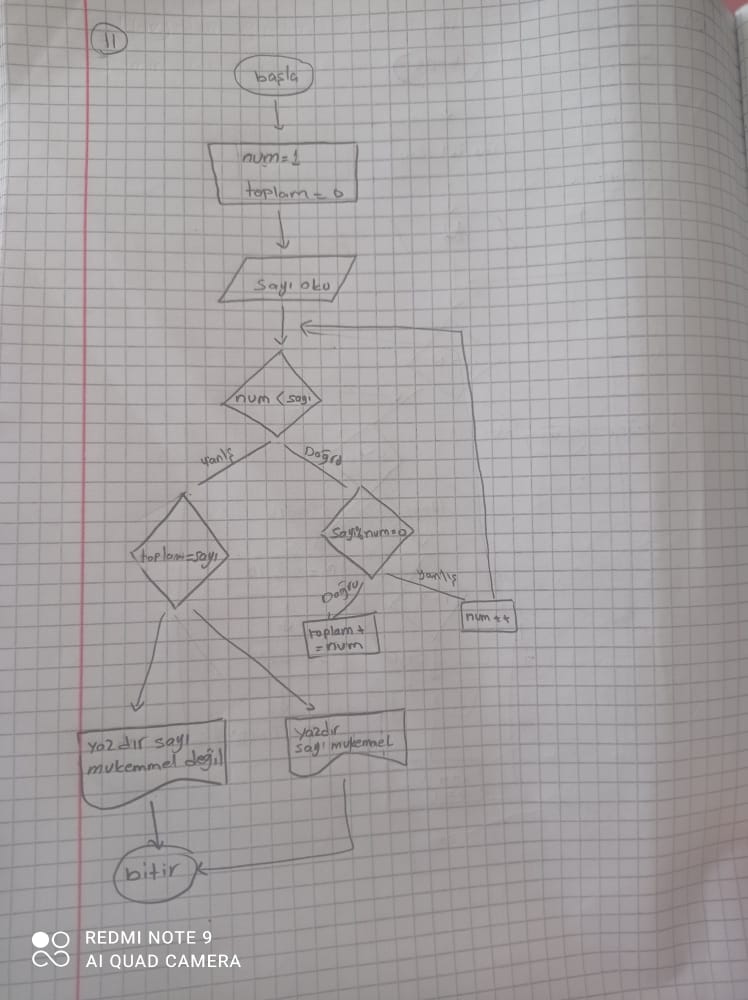 11
başla
num=1
toplam = 0
sayı oku
num < sayı
yanlış
Doğru
toplam=sayı
sayı%num=0
Doğru
yanlış
toplam +
= num
num ++
yazdır sayı
mukemmel değil
yazdır
sayı mukemmel
bitir
REDMI NOTE 9
AI QUAD CAMERA